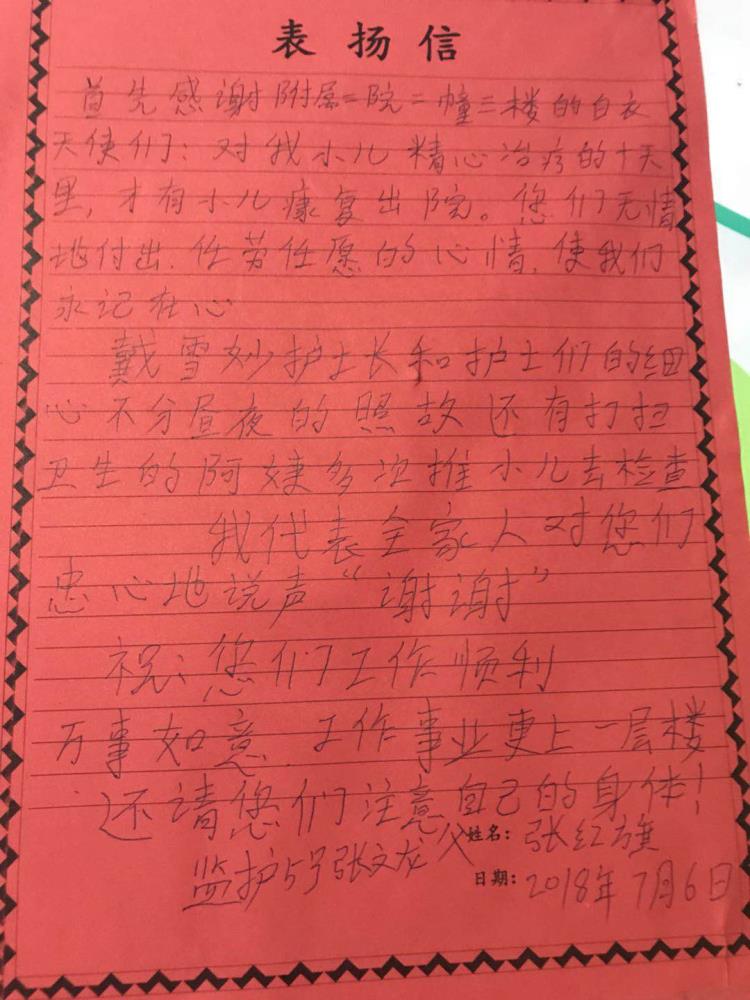 表扬信
首先感谢附属二院二幢三楼的白衣
天使们：对我小儿精心治疗的十天
里，才有小儿康复出院。您们无情
地付出.任劳任愿的心情，使我们
永记在心
戴雪妙护士长和护士们的细
心不分昼夜的照故还有打扫
卫生的阿婕多次推小儿去检查
我代表全家人对您们
忠心地说声“谢谢”
祝：您们工作顺利
万事如意.工作事业更上一层楼
还请您们注意自己的身体！
监护5号张文龙父姓名：张红旗
日期：2018年7月6日